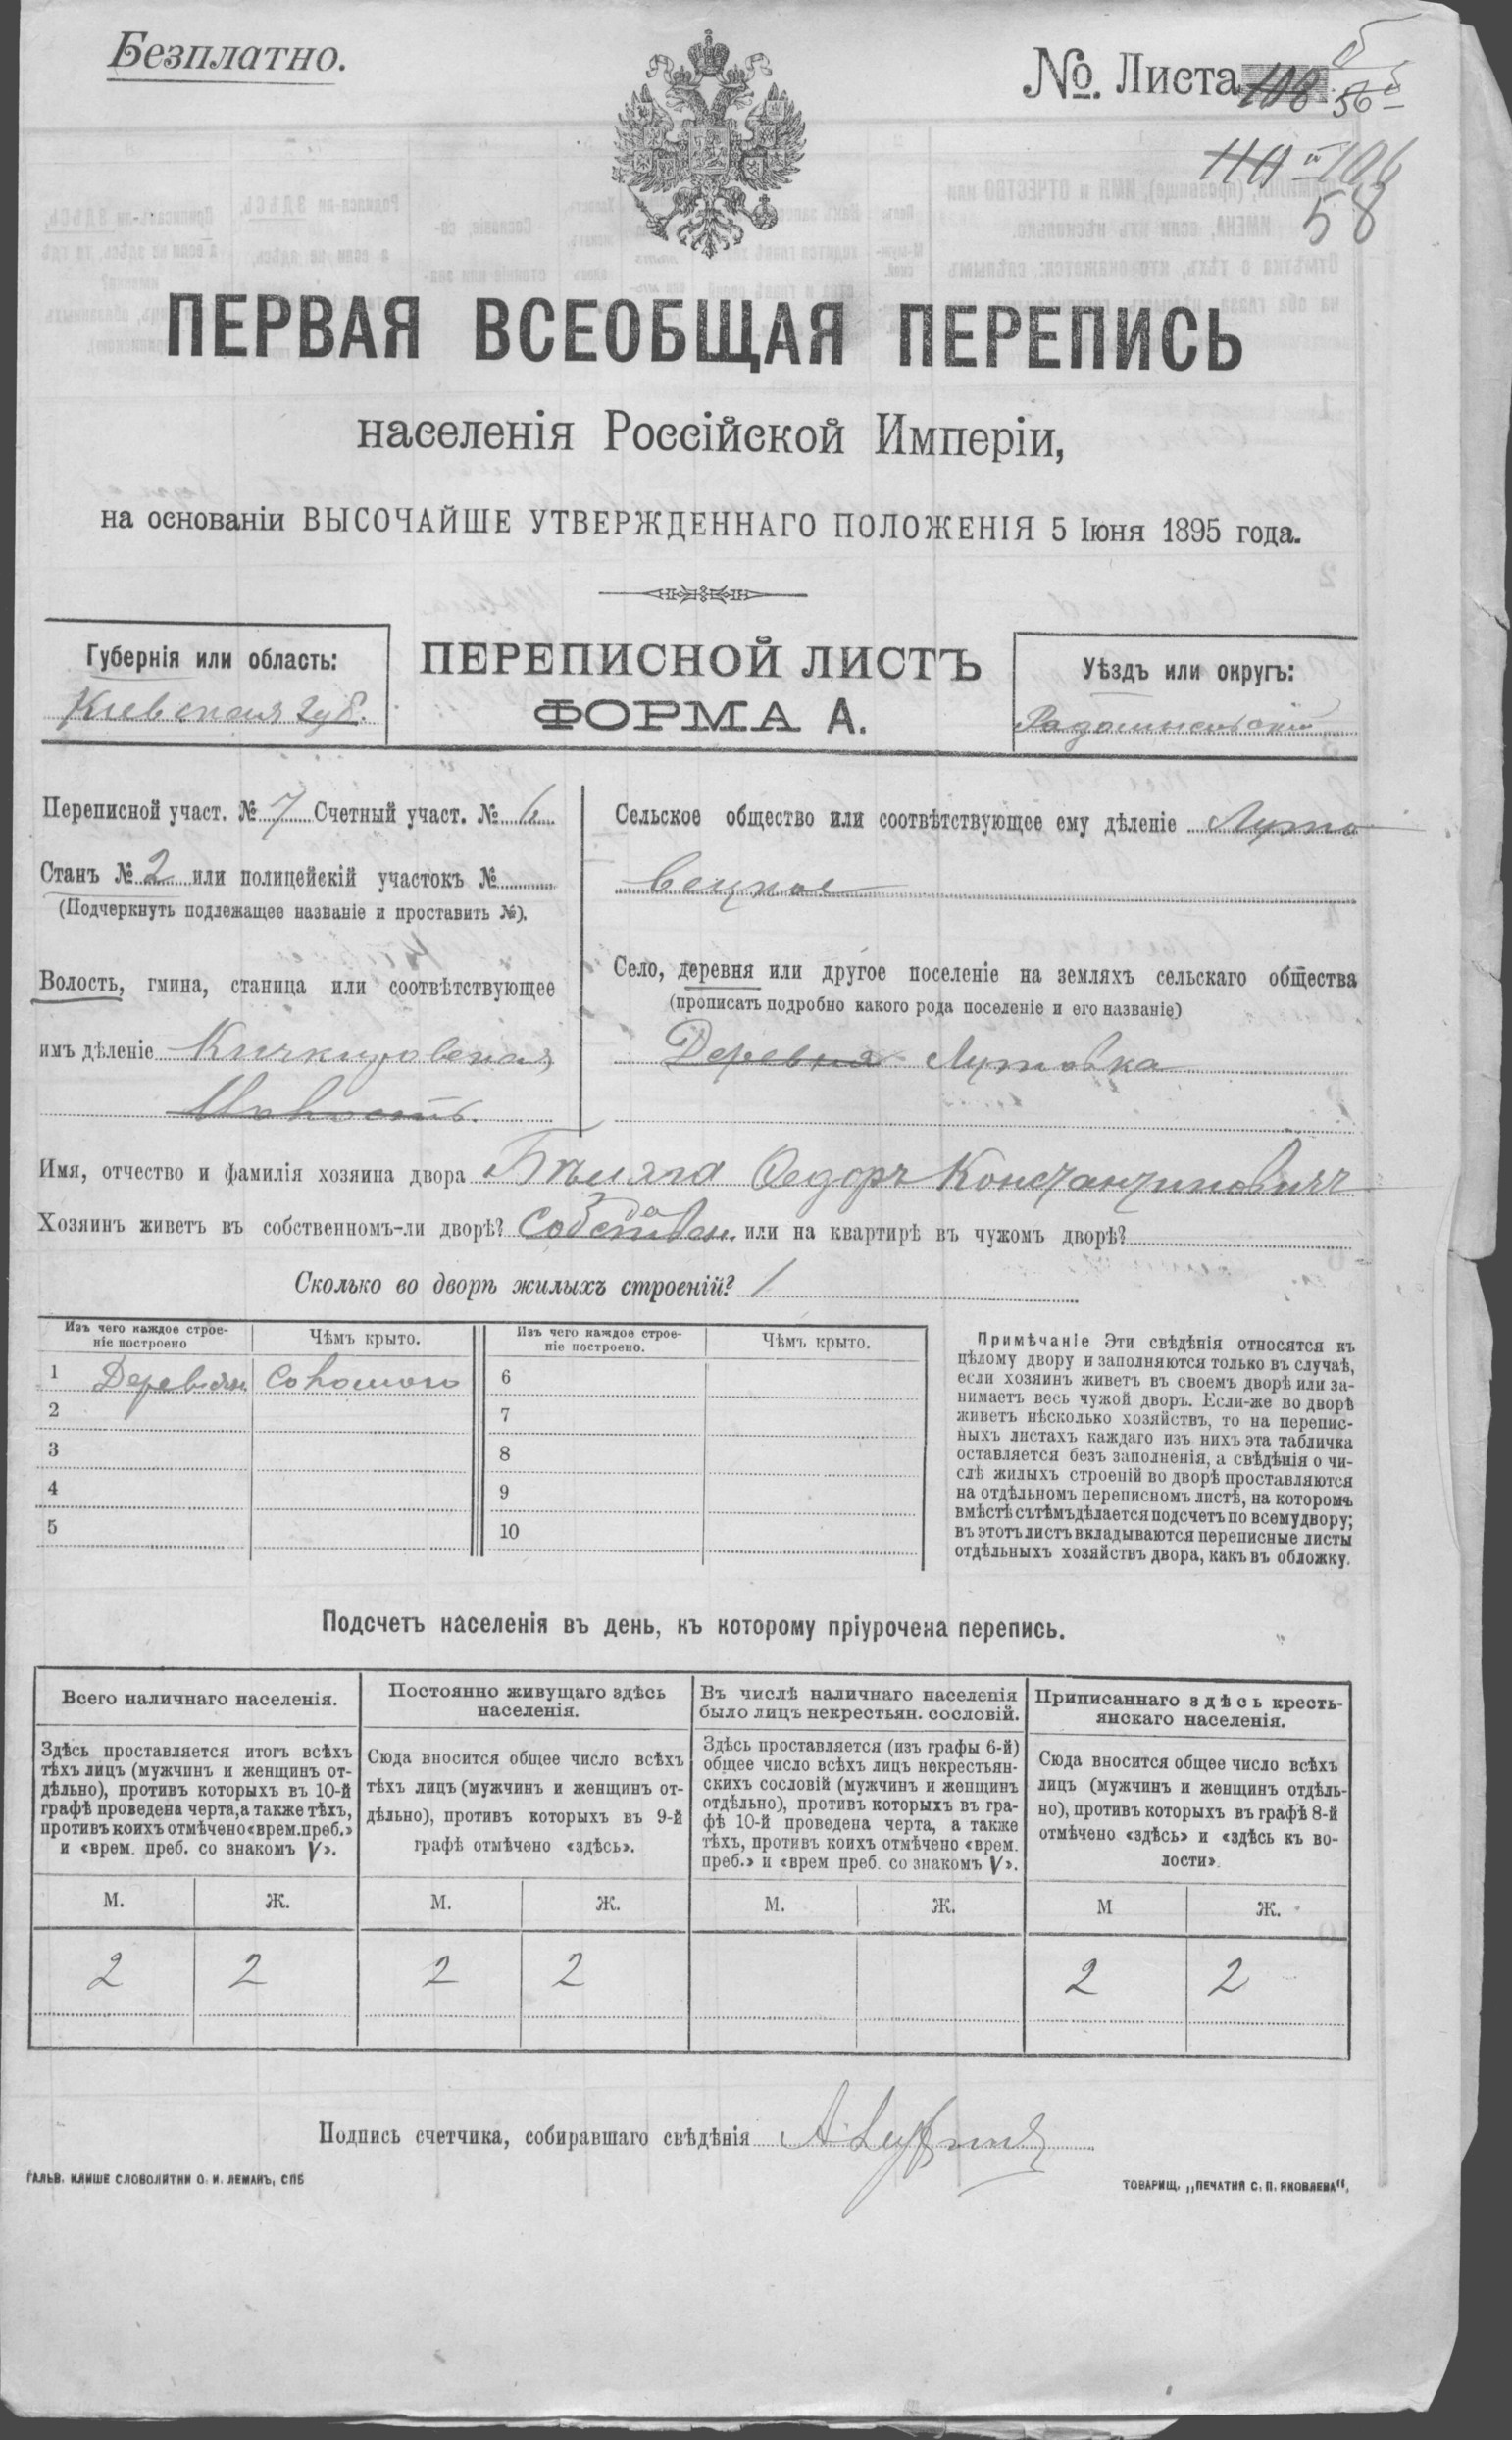 Безплатно.
№. Листа 108 56
58
ПЕРВАЯ ВСЕОБЩАЯ ПЕРЕПИСЬ
населенія Россійской Имперіи,
на основаніи ВЫСОЧАЙШЕ УТВЕРЖДЕННАГО ПОЛОЖЕНІЯ 5 Іюня 1895 года.
Губернія или область:
Киевская губ.
ПЕРЕПИСНОЙ ЛИСТЪ
ФОРМА А.
Уѣздъ или округъ:
Радомысльскій
Переписной участ. № 7 Счетный участ. № 6
Станъ № 2 или полицейскій участокъ №
(Подчеркнуть подлежащее названіе и проставить №).
Волость, гмина, станица или соотвѣтствующее
имъ дѣленіе Кичкировская
Волость.
Сельское общество или соотвѣтствующее ему дѣленіе Луто
вецкое
Село, деревня или другое поселеніе на земляхъ сельскаго общества
(прописать подробно какого рода поселеніе и его названіе)
Деревня Лутовка
Имя, отчество и фамилія хозяина двора Федоръ Константиновичъ
Хозяинъ живетъ въ собственномъ-ли дворѣ? Собствен. да или на квартирѣ въ чужомъ дворѣ?
Сколько во дворѣ жилыхъ строеній? 1
Изъ чего каждое строе-
ніе построено
Чѣмъ крыто.
Изъ чего каждое строе-
ніе построено.
Чѣмъ крыто.
1 Деревян. Соломою 6
2 7
3 8
4 9
5 10
Примѣчаніе Эти свѣдѣнія относятся къ
цѣлому двору и заполняются только въ случаѣ,
если хозяинъ живетъ въ своемъ дворѣ или за-
нимаетъ весь чужой дворъ. Если-же во дворѣ
живетъ нѣсколько хозяйствъ, то на перепис-
ныхъ листахъ каждаго изъ нихъ эта табличка
оставляется безъ заполненія, а свѣдѣнія о чи-
слѣ жилыхъ строеній во дворѣ проставляются
на отдѣльномъ переписномъ листѣ, на которомъ
вмѣстѣ съ тѣмъ дѣлается подсчетъ по всему двору;
въ этотъ листъ вкладываются переписные листы
отдѣльныхъ хозяйствъ двора, какъ въ обложку.
Подсчетъ населенія въ день, къ которому пріурочена перепись.
Всего наличнаго населенія.
Здѣсь проставляется итогъ всѣхъ
тѣхъ лицъ (мужчинъ и женщинъ от-
дѣльно), противъ которыхъ въ 10-й
графѣ проведена черта, а также тѣхъ,
противъ коихъ отмѣчено «врем. преб.»
и «врем. преб. со знакомъ V».
М. Ж.
2 2
Постоянно живущаго здѣсь
населенія.
Сюда вносится общее число всѣхъ
тѣхъ лицъ (мужчинъ и женщинъ от-
дѣльно), противъ которыхъ въ 9-й
графѣ отмѣчено «здѣсь».
М. Ж.
2 2
Въ числѣ наличнаго населенія
было лицъ некрестьян. сословій.
Здѣсь проставляется (изъ графы 6-й)
общее число всѣхъ лицъ некрестьян-
скихъ сословій (мужчинъ и женщинъ
отдѣльно), противъ которыхъ въ гра-
фѣ 10-й проведена черта, а также
тѣхъ, противъ коихъ отмѣчено «врем.
преб.» и «врем преб. со знакомъ V».
М. Ж.
Приписаннаго здѣсь кресть-
янскаго населенія.
Сюда вносится общее число всѣхъ
лицъ (мужчинъ и женщинъ отдѣль-
но), противъ которыхъ въ графѣ 8-й
отмѣчено «здѣсь» и «здѣсь къ во-
лости».
М Ж.
2 2
Подпись счетчика, собиравшаго свѣдѣнія
ГАЛЬВ. КЛИШЕ СЛОВОЛИТНИ О. И. ЛЕМАНЪ, СПБ
ТОВАРИЩ. „ПЕЧАТНЯ С. П. ЯКОВЛЕВА“,